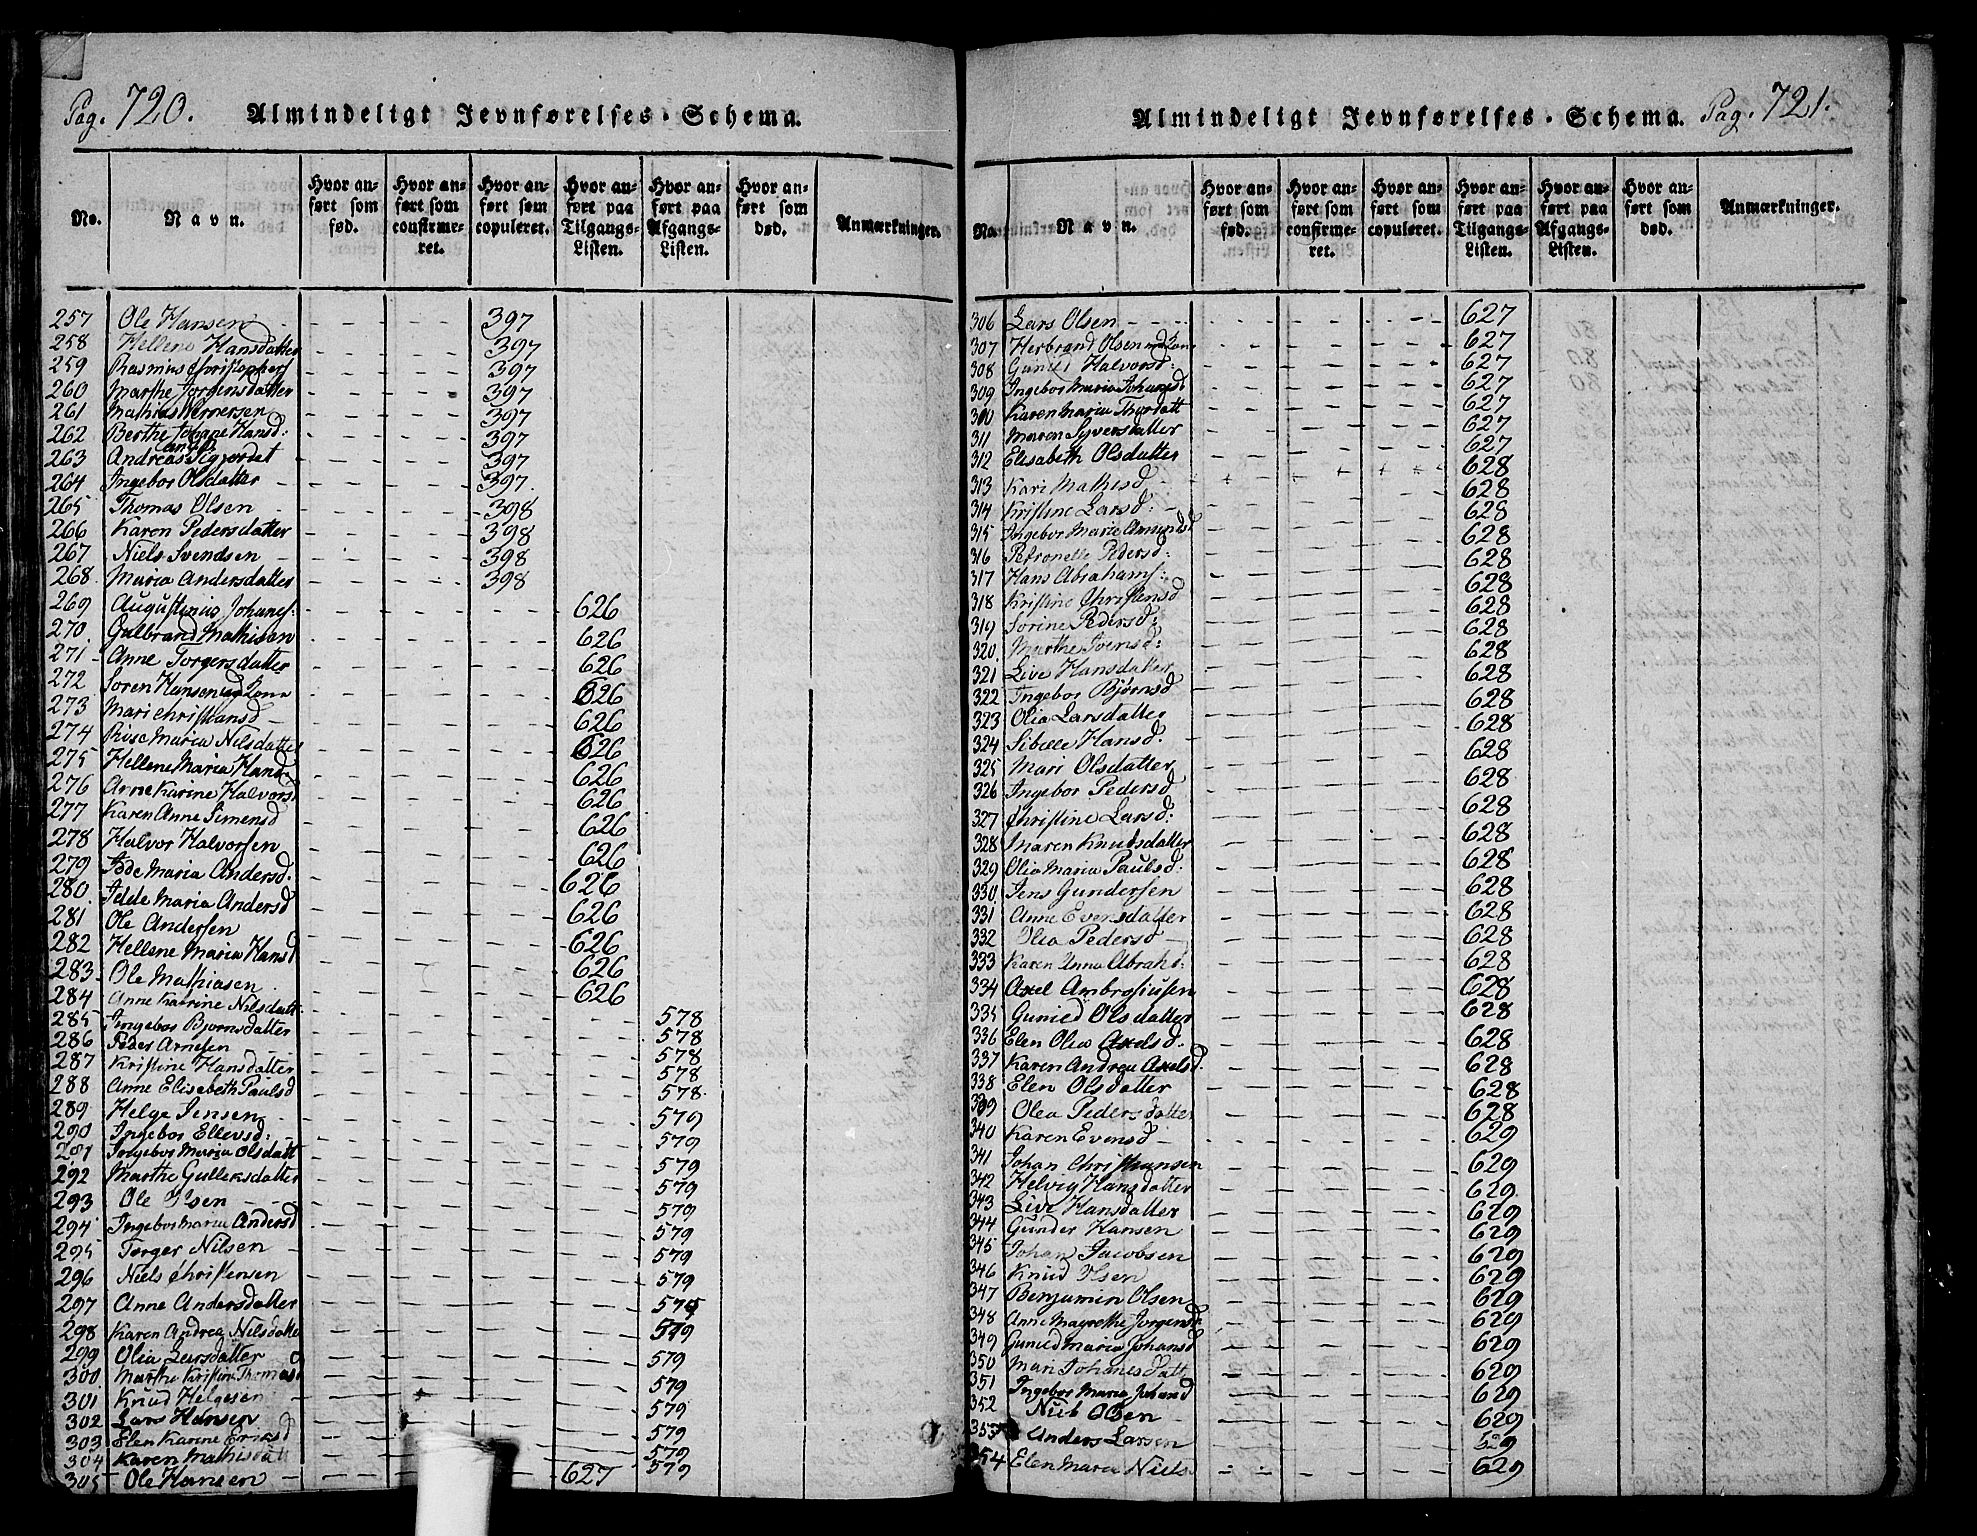 Pag. 720. Almindeligt Jevnførelses-Schema.
No. Navn. Hvor anført som fød. Hvor anført som confirmeret. Hvor anført som copuleret. Hvor anført paa Tilgangs-Listen. Hvor anført paa Afgangs-Listen. Hvor anført som død. Anmærkninger.
257 Ole Hansen 397
258 Hellene Hansdatter 397
259 Rasmus Christophers 397
260 Marthe Jorgensdatter 397
261 Mathias Wernersen 397
262 Berthe Johane Hansd: 397
263 Andreas 397
264 Ingebor Olsdatter 397.
265 Thomas Olsen 398
266 Karen Pedersdatter 398
267 Niels Svendsen 398
268. Maria Andersdatter 398
269 Augustinus Johanes: 626
270. Gulbrand Mathisen 626
271 Anne Torgersdatter 626
272 Soren Hansen og Kone 626
273 Mari Christiansd 626
274 Maria Nilsdatter 626
275 Hellene Maria Hansd. 626
276 Anne Karine Halvorsd 626
277 Karen Anne Simensd 626
278 Halvor Halvorsen 626
279 Ide Maria Andersd. 626
280. Idde Maria Andersd 626
281 Ole Andersen 626
282 Hellene Maria Hansd 626
283 Ole Mathiasen 626
284 Anne Katrine Nilsdatt 578
285 Ingebor Bjornsdatter 578
286 Peder Arnesen 578
287 Kristine Hansdatter 578
288 Anne Elisabeth Paulsd 578.
289 Helge Jensen 579
290 Ingebor Ellevsd: 579
291 Ingebor Maria Olsdatt 579
292 Marthe Gulleksdatter 579
293 Ole Olsen 579
294 Ingebor Maria Andersd 579
295 Torger Nilsen 579
296 Niels Christensen 579
297 Anne Andersdatter 579
298 Karen Andrea Nilsdatte 579
299 Olia Larsdatter 579
300 Marthe Kristine Thomasd 579
301 Knud Helgesen 579
302 Lars Hansen 579
303 Elen Karine Eriksd 579
304 Karen Mathisdatt 579
305 Ole Hansen 627
Almindeligt Jevnførelses-Schema. Pag. 721.
No. Navn. Hvor anført som fød. Hvor anført som confirmeret. Hvor anført som copuleret. Hvor anført paa Tilgangs-Listen. Hvor anført paa Afgangs-Listen. Hvor anført som død. Anmærkninger.
306 Lars Olsen 627
307 Herbrand Olsen med Kone 627
308 Guniel Halvorsd: 627
309 Ingebor Maria Johansd 627
300 Karen Maria Thordatt 627
311 Maren Syversdatter 627
312 Elisabeth Olsdatter 627
313 Kari Mathisd 628
314 Kristine Larsd: 628
315 Ingebor Marie Amundsd 628
316 Petronelle Pedersd: 628
317 Hans Abrahams: 628
318 Kristine Christensd 628
319 Sorine Pedersd: 628
320. Marthe Iversd: 628
321 Live Hansdatter 628
322 Ingebor Bjørnsd 628
323 Olia Larsdatter 628
324 Sibille Hansd. 628
325 Mari Olsdatter 628
326 Ingebor Pedersd 628
327 Christine Larsd: 628
328 Maren Knudsdatter 628
329 Olia Maria Paulsd: 628
330. Jens Gundersen 628
331 Anne Eversdatter 628
332 Olia Pedersd 628
333 Karen Anna Abrahd: 628
334 Axel Ambrosiusen 628
335 Gunied Olsdatter 628
336 Elen Olia Axelsd. 628
337 Karen Andrea Axelsd. 628
338 Elen Olsdatter 628
339 Olea Pedersdatter 628
340 Karen Evensd 629
341 Johan Christiansen 629
342 Helvig Hansdatter 629
343 Live Hansdatter 629
344 Gunder Hansen 629
345 Johan Jacobsen 629
346 Knud Olsen 629
347 Benjamin Olsen 629
348 Anne Magrethe Jorgensd 629
349 Gunied Maria Johansd 629
350 Mari Johanesdatt 629
351 Ingebor Maria Johand 629
352 Niels Olsen 629
353 Anders Larsen 629
354 Elen Maria Niels 629